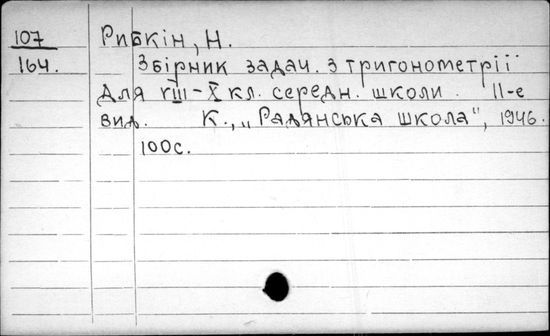 107 Рибкін, Н.
164. Збірник задач. з тригонометрії
для VIII-X кл. середн. школи. II-е
вид. К., "Радянська школа", 1946.
100с.